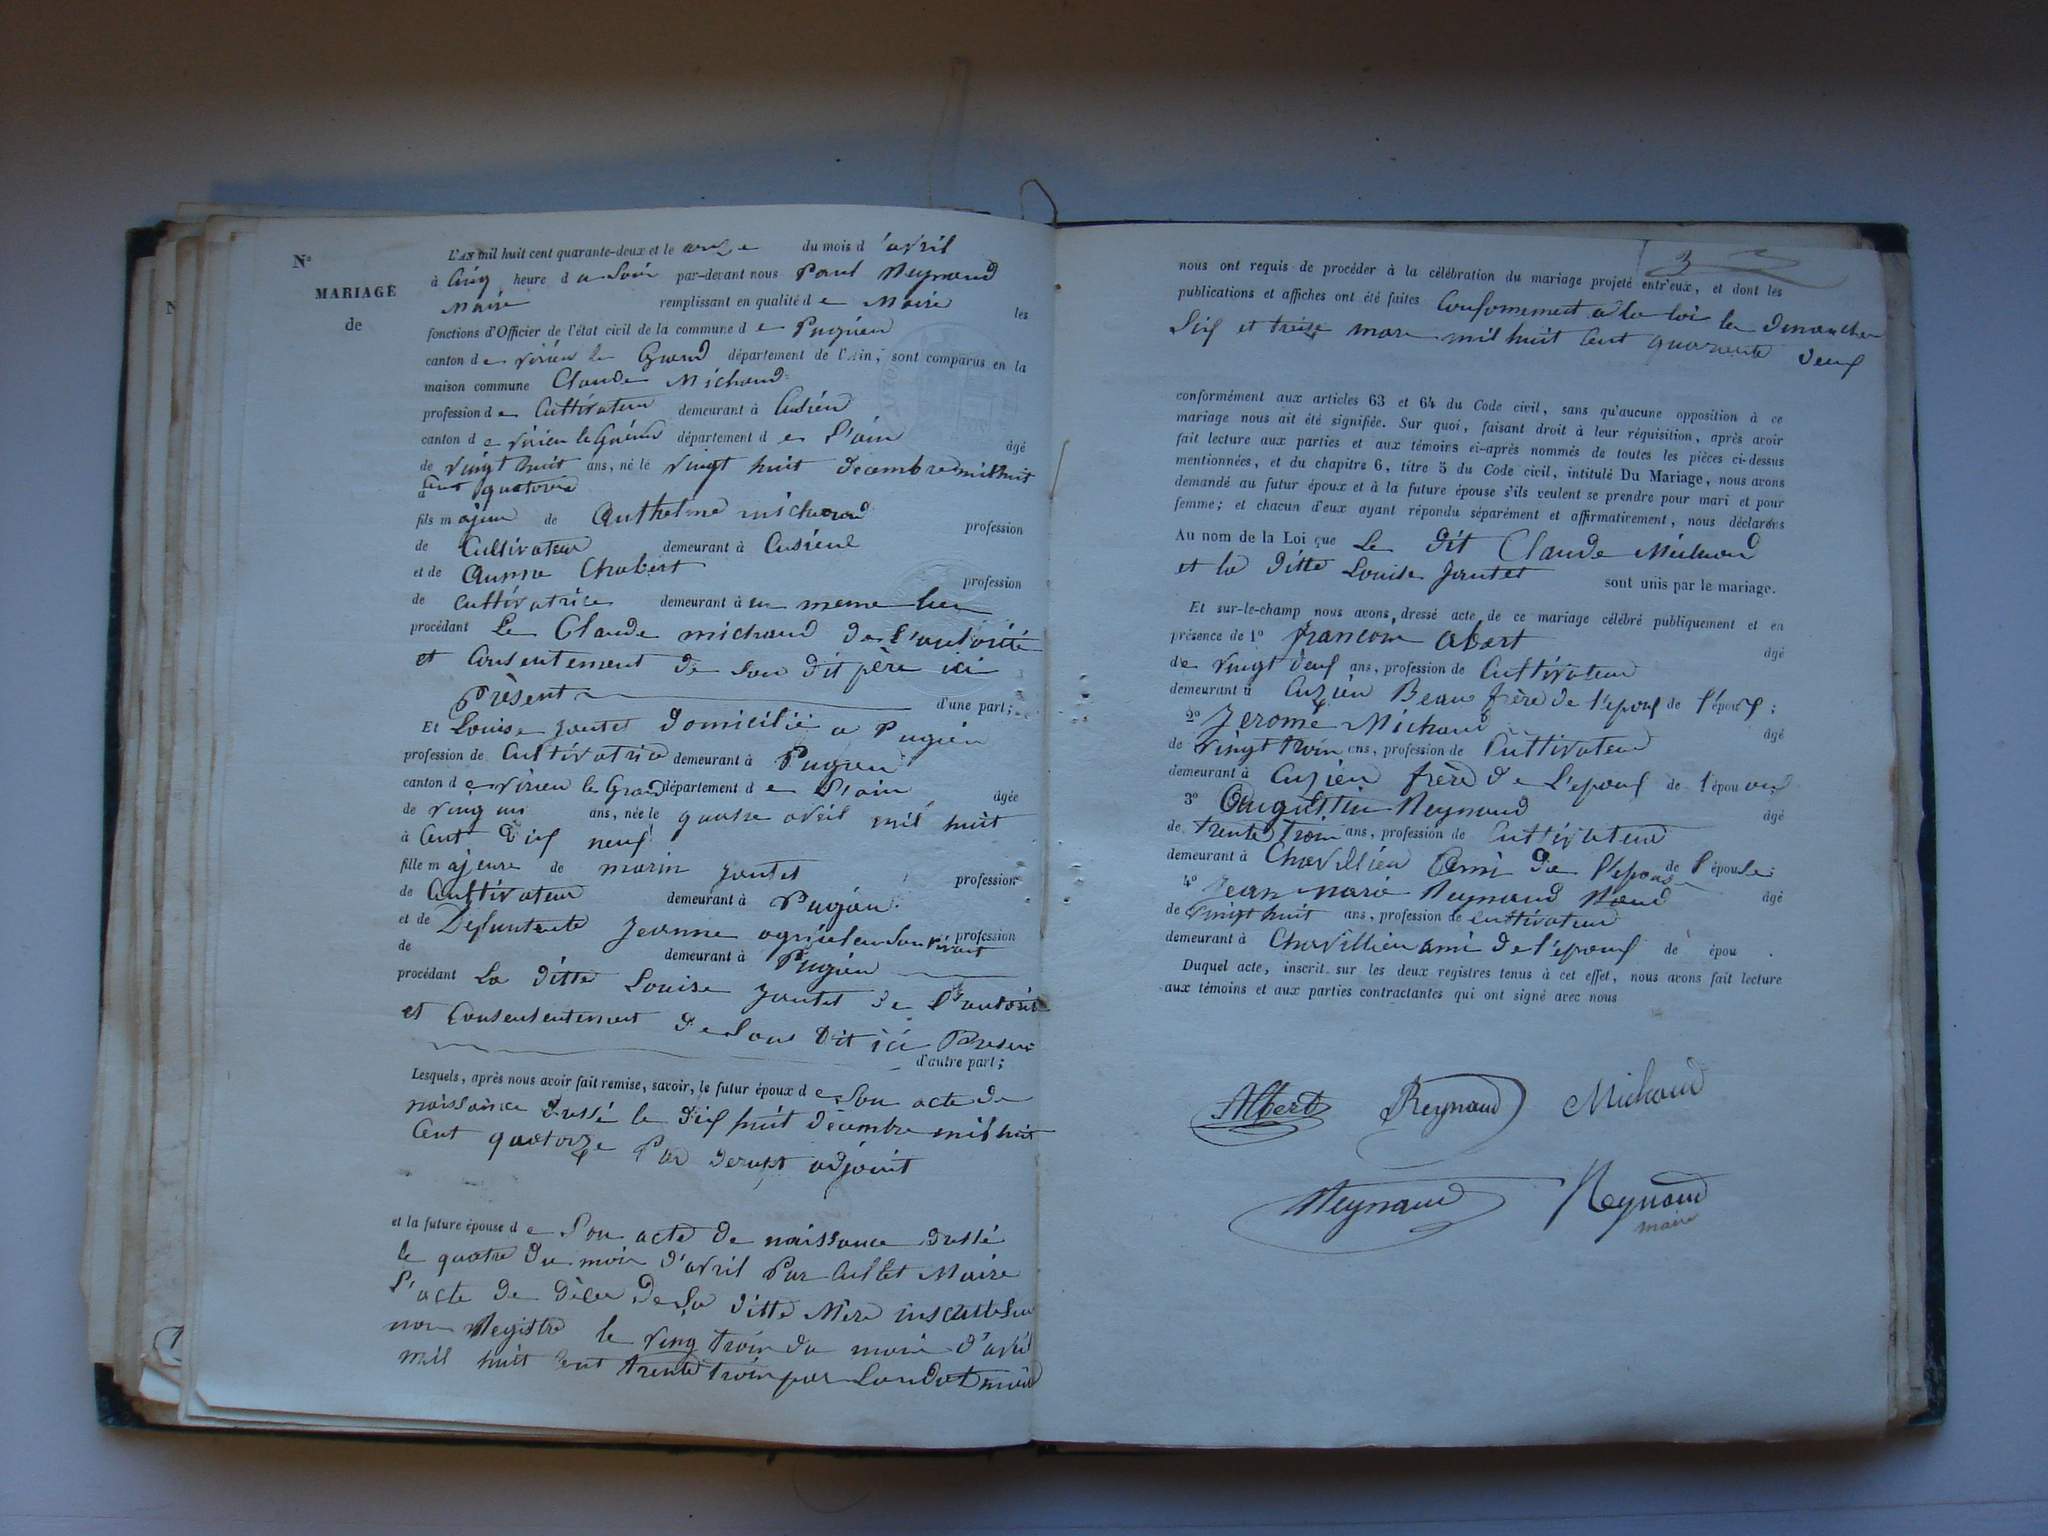 N°
MARIAGE
de
L'AN mil huit cent quarante-deux et le onze du mois d'avril
à Cinq heure du Soir par-devant nous Paul Reynaud
Maire remplissant en qualité de Maire les
fonctions d'Officier de l'état civil de la commune de Pugieu
canton de virieu le Grand département de l'Ain, sont comparus en la
maison commune Claude Michaud
profession de Cultivateur demeurant à Cusieu
canton de virieu le Grand département de l'ain âgé
de vingt huit ans, né le vingt huit decembre mil huit
à cent quatorze
fils majeur de Anthelme michaud profession
de Cultivateur demeurant à Cusieu
et de Chabert profession
de cultivatrice demeurant à en meme lieu
procédant Le Claude michaud de l'autorité
et Consentement de Son dit père ici
Présent d'une part;
Et Louise Jantet domicilié a Pugieu
profession de Cultivatrice demeurant à Pugieu
canton de virieu le Grand département de l'ain âgée
de ving un ans, née le quatre avril mil huit
à Cent dix neuf
fille majeure de marin Jantet profession
de Cultivateur demeurant à Pugieu
et de Jeanne profession
de demeurant à Pugieu
procédant La ditte Louise Jantet de l'autorité
et de Son dit ici Present
d'autre part;
Lesquels, après nous avoir fait remise, savoir, le futur époux de Son acte de
naissance dressé le dix huit decembre mil huit
Cent quatorze Par adjoint
et la future épouse de Son acte de naissance dressé
le quatre du mois d'avril Par Maire
l'acte de décès de La ditte Mère
Registre le ving trois du mois d'avril
mil huit cent trente trois par
3
nous ont requis de procéder à la célébration du mariage projeté entr'eux, et dont les
publications et affiches ont été faites Conformement a la loi les dimanches
Six et treize mars mil huit Cent quarante deux
conformément aux articles 63 et 64 du Code civil, sans qu'aucune opposition à ce
mariage nous ait été signifiée. Sur quoi, faisant droit à leur réquisition, après avoir
fait lecture aux parties et aux témoins ci-après nommés de toutes les pièces ci-dessus
mentionnées, et du chapitre 6, titre 5 du Code civil, intitulé Du Mariage, nous avons
demandé au futur époux et à la future épouse s'ils veulent se prendre pour mari et pour
femme; et chacun d'eux ayant répondu séparément et affirmativement, nous déclarons
Au nom de la Loi que Le dit Claude Michaud
et la ditte Louise Jantet sont unis par le mariage.
Et sur-le-champ nous avons dressé acte de ce mariage célébré publiquement et en
présence de 1° francois âgé
de vingt deux ans, profession de Cultivateur
demeurant à Cuzieu Beau frère de l'epoux de l'époux;
2° Jerome Michaud âgé
de vingt trois ans, profession de Cultivateur
demeurant à Cuzieu frère de L'epoux de l'époux
3° Augustin Reynaud âgé
de trente trois ans, profession de Cultivateur
demeurant à Chavillieu Ami de l'epouse de l'épouse
4° Jean marie Reynaud âgé
de vingt huit ans, profession de cultivateur
demeurant à Chavillieu ami de l'époux de épou .
Duquel acte, inscrit sur les deux registres tenus à cet effet, nous avons fait lecture
aux témoins et aux parties contractantes qui ont signé avec nous
Albert Reynaud Michaud
Reynaud Reynaud
maire